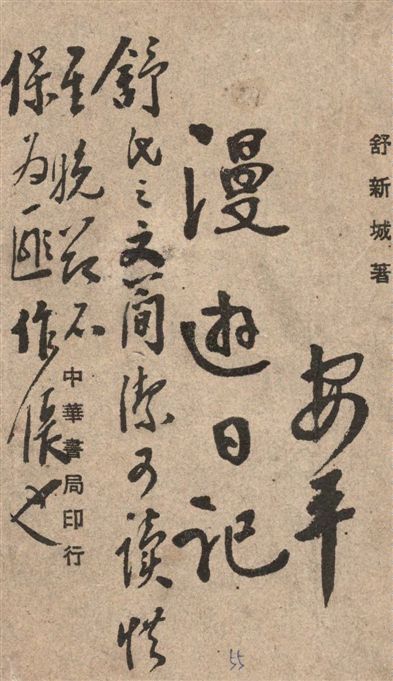 舒新城著
安平
漫遊日記
舒氏之文簡潔可讀惜
至晚節不
保為匪作倀也
中華書局印行
55